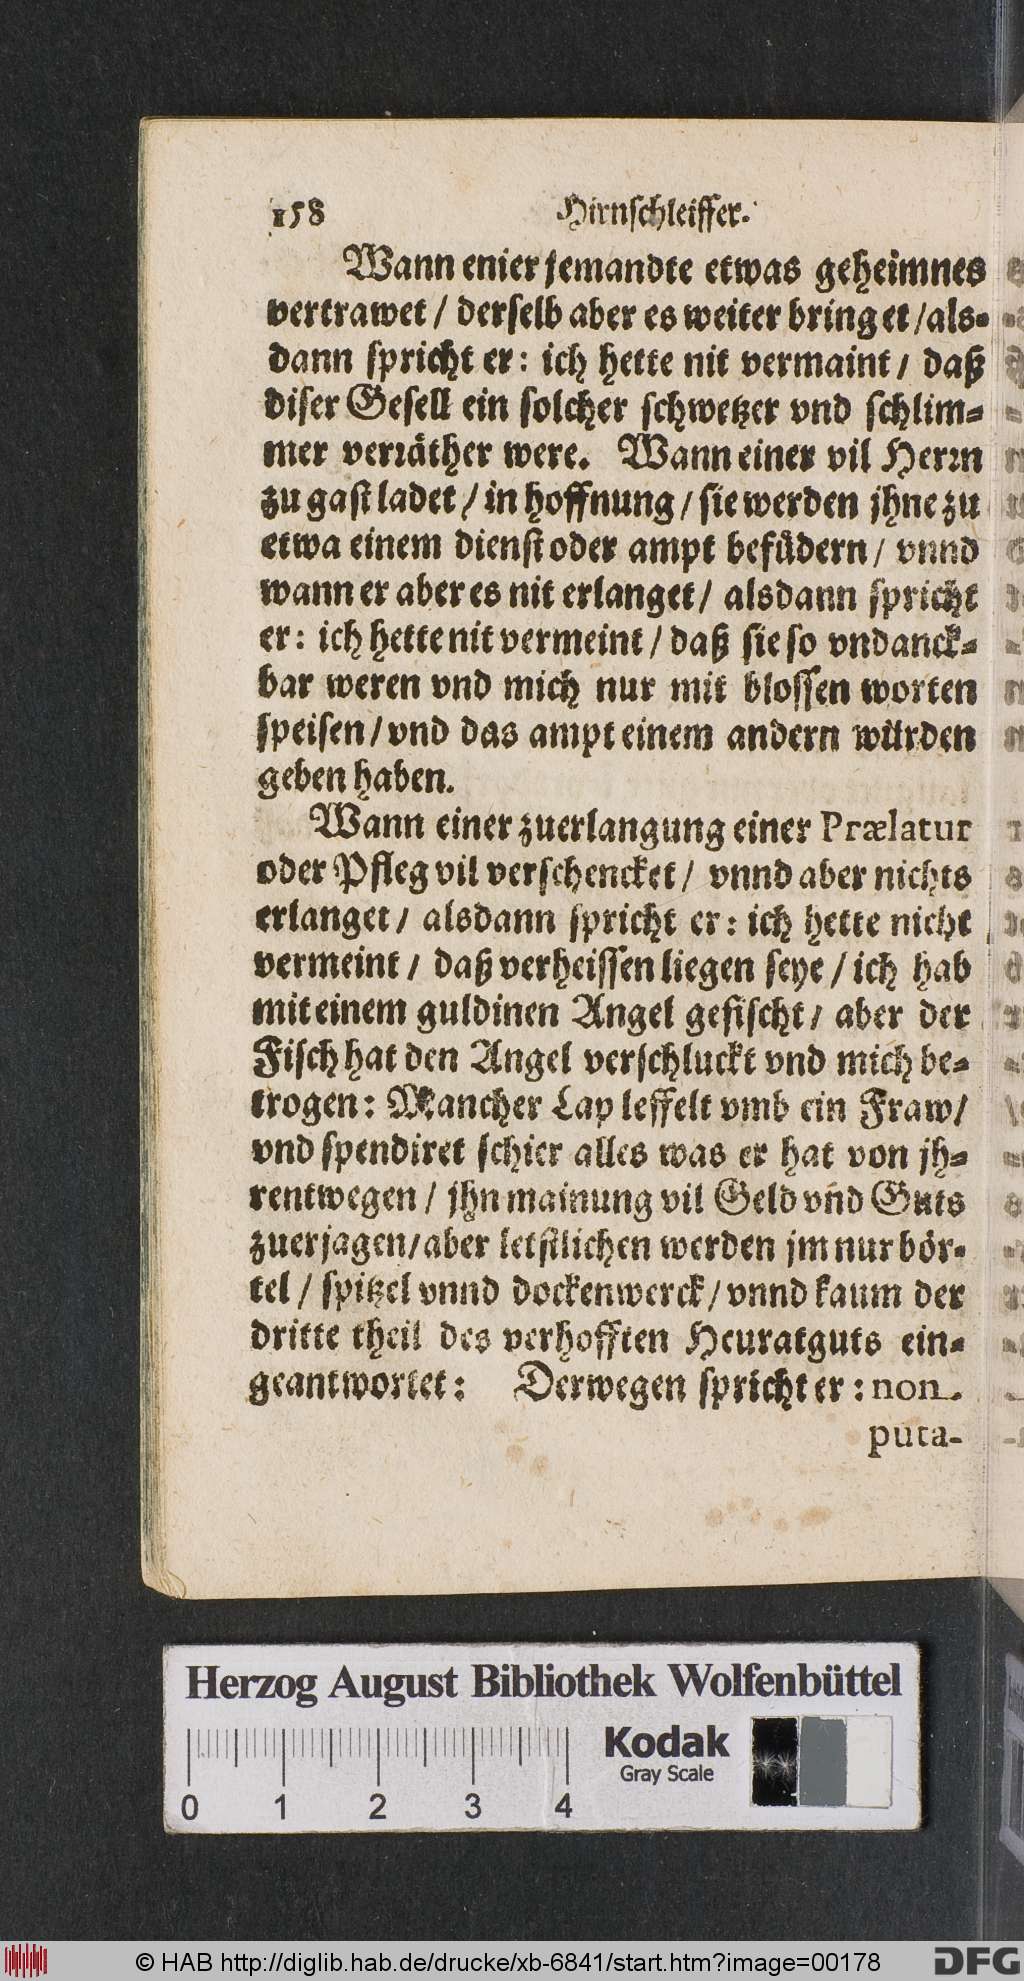 158 Hirnschleiffer.
Wann enier jemandte etwas geheimnes
vertrawet / derselb aber es weiter bringet / als-
dann spricht er: ich hette nit vermaint / daß
diser Gesell ein solcher schwetzer vnd schlim-
mer verräther were. Wann einer vil Herrn
zu gast ladet / in hoffnung / sie werden jhne zu
etwa einem dienst oder ampt befüdern / vnnd
wann er aber es nit erlanget / alsdann spricht
er: ich hette nit vermeint / daß sie so vndanck-
bar weren vnd mich nur mit blossen worten
speisen / vnd das ampt einem andern würden
geben haben.
Wann einer zuerlangung einer Prælatur
oder Pfleg vil verschencket / vnnd aber nichts
erlanget / alsdann spricht er: ich hette nicht
vermeint / daß verheissen liegen seye / ich hab
mit einem guldinen Angel gefischt / aber der
Fisch hat den Angel verschluckt vnd mich be-
trogen: Mancher Lap leffelt vmb ein Fraw /
vnd spendiret schier alles was er hat von jh-
rentwegen / jhn mainung vil Geld vnd Guts
zuerjagen / aber letstlichen werden jm nur bör-
tel / spitzel vnnd dockenwerck / vnnd kaum der
dritte theil des verhofften Heuratguts ein-
geantwortet: Derwegen spricht er: non
puta-
Herzog August Bibliothek Wolfenbüttel
0 1 2 3 4
Kodak
Gray Scale
© HAB http://diglib.hab.de/drucke/xb-6841/start.htm?image=00178
DFG